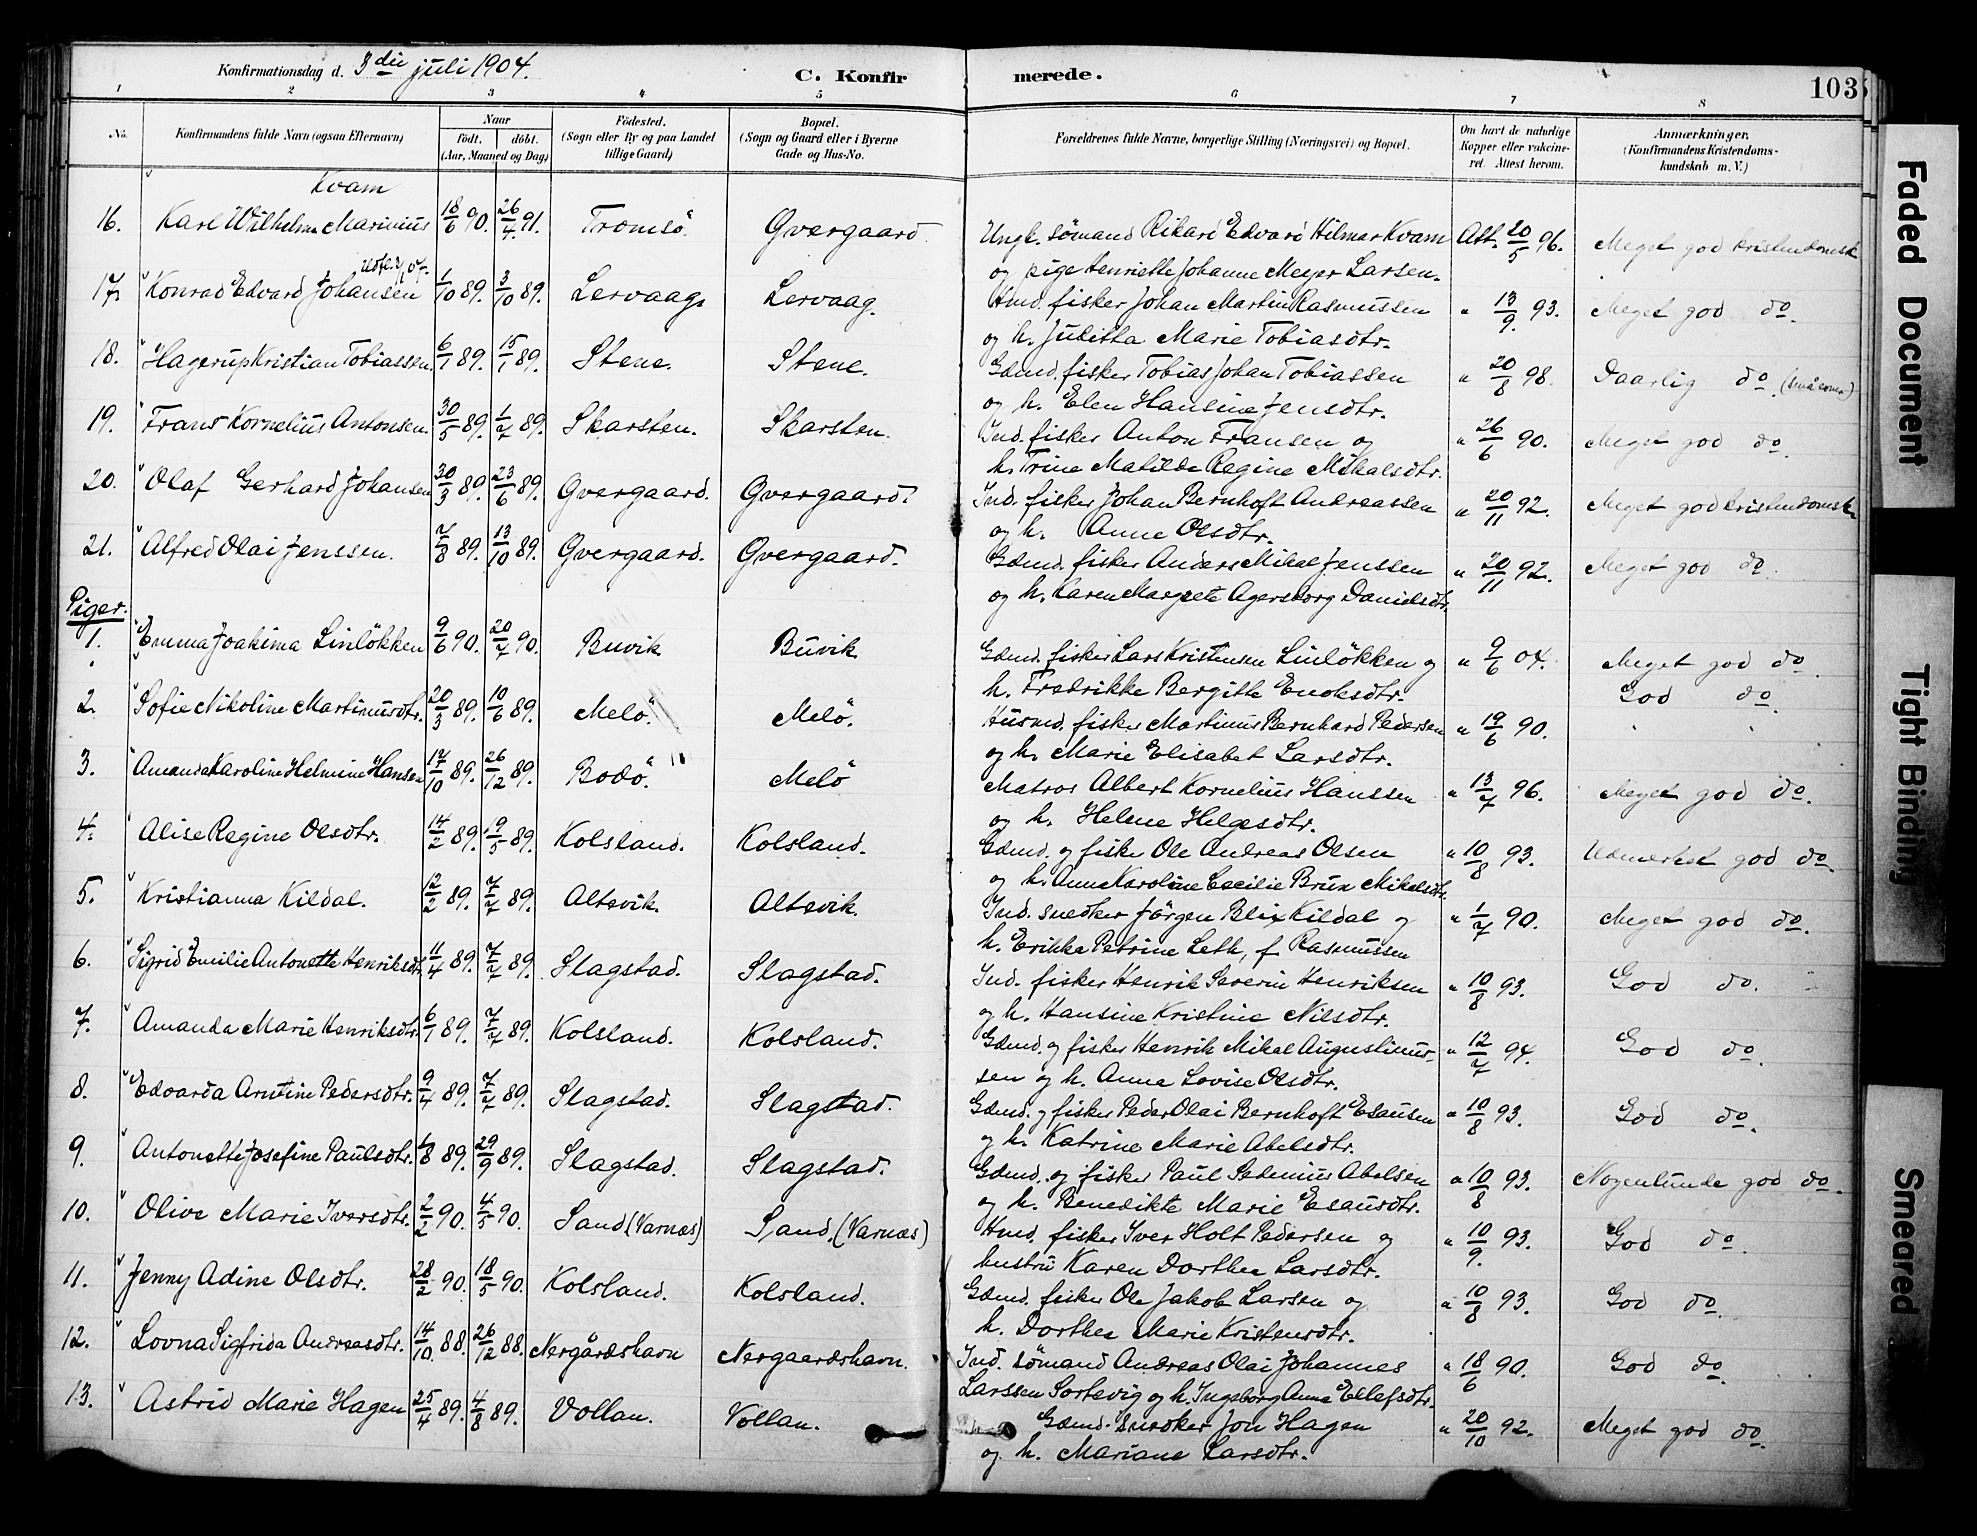 Konfirmationsdag d. 3die juli 1904.
C. Konfirmerede.
103
1 2 3 4 5 6 7 8
No. Konfirmandens fulde Navn (ogsaa Efternavn) Naar født. døbt. (Aar, Maaned og Dag) Fødested. (Sogn eller By og paa Landet tillige Gaard) Bopæl. (Sogn og Gaard eller i Byerne Gade og Hus-No. Forældrenes fulde Navne, borgerlige Stilling (Næringsvei) og Bopæl. Om havt de naturlige Kopper eller vakcineret. Attest herom. Anmærkninger, (Konfirmandens Kristendomskundskab m. V.)
Kvam
16. Karl Wilhelm Marinius 18/6 90. 26/4 91. Tromsö. Gvergaard. Ungk. sömand Rikard Edvard Hilmar Kvam Att. 20/5 96. Meget god kristendomsk
og pige Henriette Johanne Meyer Larsen.
17. Konrad Edvard Johansen 1/10 89. 3/10 89. Lervaag. Lervaag. Hmd. fisker Johan Martin Rasmussen " 13/9 93. Meget god do.
og h. Julitta Marie Tobiasdtr.
18. Hagerup Kristian Tobiassen. 6/1 89. 15/1 89. Stene. Stene. Gdmd. fisker Tobias Johan Tobiassen " 20/8 98. Daarlig do.
og h. Elen Hansine Jensdtr.
19. Frans Kornelius Antonsen. 30/5 89. 1/7 89. Skarsten. Skarsten. Ind. fisker Anton Fransen og " 26/6 90. Meget god do.
h. Trine Matilde Regine Mikalsdtr.
20. Olaf Gerhard Johansen 30/3 89. 23/6 89. Gvergaard. Gvergaard. Ind. fisker Johan Bernhoft Andreassen " 20/11 92. Meget god kristendomsk
og h. Anne Olsdtr.
21. Alfred Olai Jenssen. 7/8 89. 13/10 89. Gvergaard. Gvergaard. Gdmd. fisker Anders Mikal Jenssen " 20/11 92. Meget god do.
og h. Karen Margrete Agersborg Danielsdtr.
Piger.
1. Emma Joakima Linlökken 9/6 90. 20/7 90. Buvik Buvik Gdmd. fisker Lars Kristensen Linlökken og " 9/6 04. Meget god do.
h. Fredrikke Bergitte Enoksdtr.
2. Sofie Nikoline Martinusdtr. 20/3 89. 10/6 89. Melö. Melö. Husmd. fisker Martinus Bernhard Pedersen " 19/6 90. God do.
og h. Marie Elisabet Larsdtr.
3. Amanda Karoline Helmine Hansen 17/10 89. 26/12 89. Bodö. Melö Matros Albert Kornelius Hanssen " 13/7 96. Meget god do.
og h. Helene Helgesdtr.
4. Alise Regine Olsdtr. 14/2 89. 9/5 89. Kolsland. Kolsland. Gdmd. og fisker Ole Andreas Olsen " 10/8 93. Udmerket god do.
og h. Anna Karoline Cecilie Brun Mikalsdtr.
5. Kristianna Kildal. 12/2 89. 7/7 89. Altevik. Altevik. Ind. snedker Jörgen Blix Kildal og " 1/7 90. Meget god do.
h. Erikka Petrine Leth, f Rasmussen
6. Sigrid Emilie Antonette Henriksdtr. 11/4 89. 7/7 89. Slagstad. Slagstad. Ind. fisker Henrik Severin Henriksen " 10/8 93. God do.
og h. Hansine Kristine Nilsdtr.
7. Amanda Marie Henriksdtr. 6/1 89. 7/7 89. Kolsland. Kolsland. Gdmd. og fisker Henrik Mikal Augustinus- " 12/7 94. God do.
sen og h. Anna Lovise Olsdtr.
8. Edvarda Arntine Pedersdtr. 9/4 89. 7/7 89. Slagstad. Slagstad. Gdmd. og fisker Peder Olai Bernhoft Esausen " 10/8 93. God do.
og h. Katrine Marie Abelsdtr.
9. Antonette Josefine Paulsdtr. 1/8 89. 29/9 89. Slagstad. Slagstad. Gdmd. og fisker Paul Sedenius Abelsen " 10/8 93. Nogenlunde god do.
og h. Benedikte Marie Esausdtr.
10. Olive Marie Iversdtr. 2/2 90. 4/5 90. Sand (Varnæs) Sand. (Varnæs) Hmd. fisker Iver Holt Pedersen og " 10/9. 93. God do.
hustru Karen Dorthea Larsdtr.
11. Jenny Adine Olsdtr. 28/2 90. 18/5 90. Kolsland. Kolsland. Gdmd. fisker Ole Jakob Larsen og " 10/8 93. God do.
h. Dorthea Marie Kristensdtr.
12. Lovna Sigfrida Andreasdtr. 14/10. 88. 26/12 88. Nergårdshavn Nergaardshavn. Ind. sömand Andreas Olai Johannes " 18/6 90. God do.
Larssen Sortevig og h. Ingeborg Anna Ellefsdtr.
13. Astrid Marie Hagen 25/4 89. 4/8 89. Vollan. Vollan. Gdmd. snedker Jon Hagen " 20/10 92. Meget god do.
og h. Mariane Larsdtr.
Faded Document
Tight Binding
Smeared